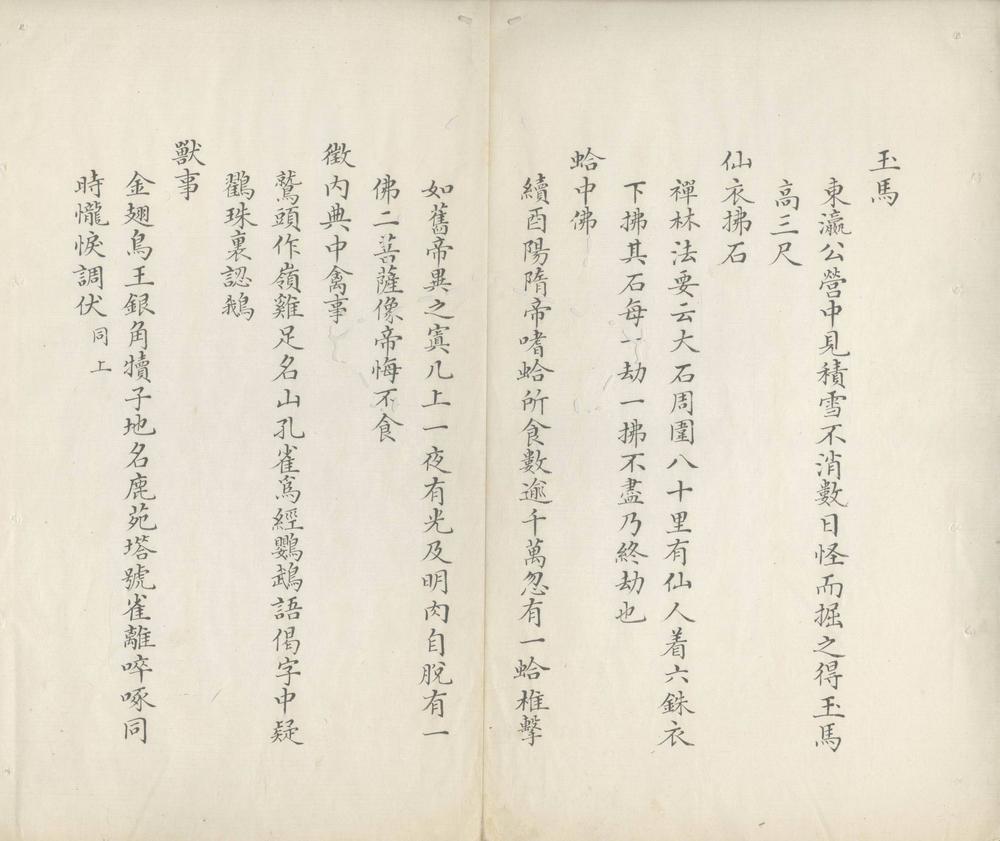 玉馬
東瀛公營中見積雪不消數日怪而掘之得玉馬
高三尺
仙衣拂石
禪林法要云大石周圍八十里有仙人着六銖衣
下拂其石每一劫一拂不盡乃終劫也
蛤中佛
續酉陽隋帝嗜蛤所食數逾千萬忽有一蛤椎擊
如舊帝異之寘几上一夜有光及明肉自脫有一
佛二菩薩像帝悔不食
徵內典中禽事
鷲頭作嶺雞足名山孔雀爲經鸚鵡語偈字中疑
鸛珠裏認鵝
獸事
金翅鳥王銀角犢子地名鹿苑塔號雀離啐啄同
時㦕悷調伏同上